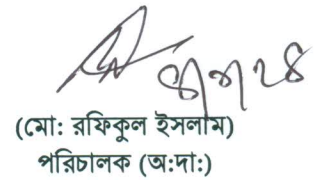 (মো: রফিকুল ইসলাম)
পরিচালক (অ:দা:)